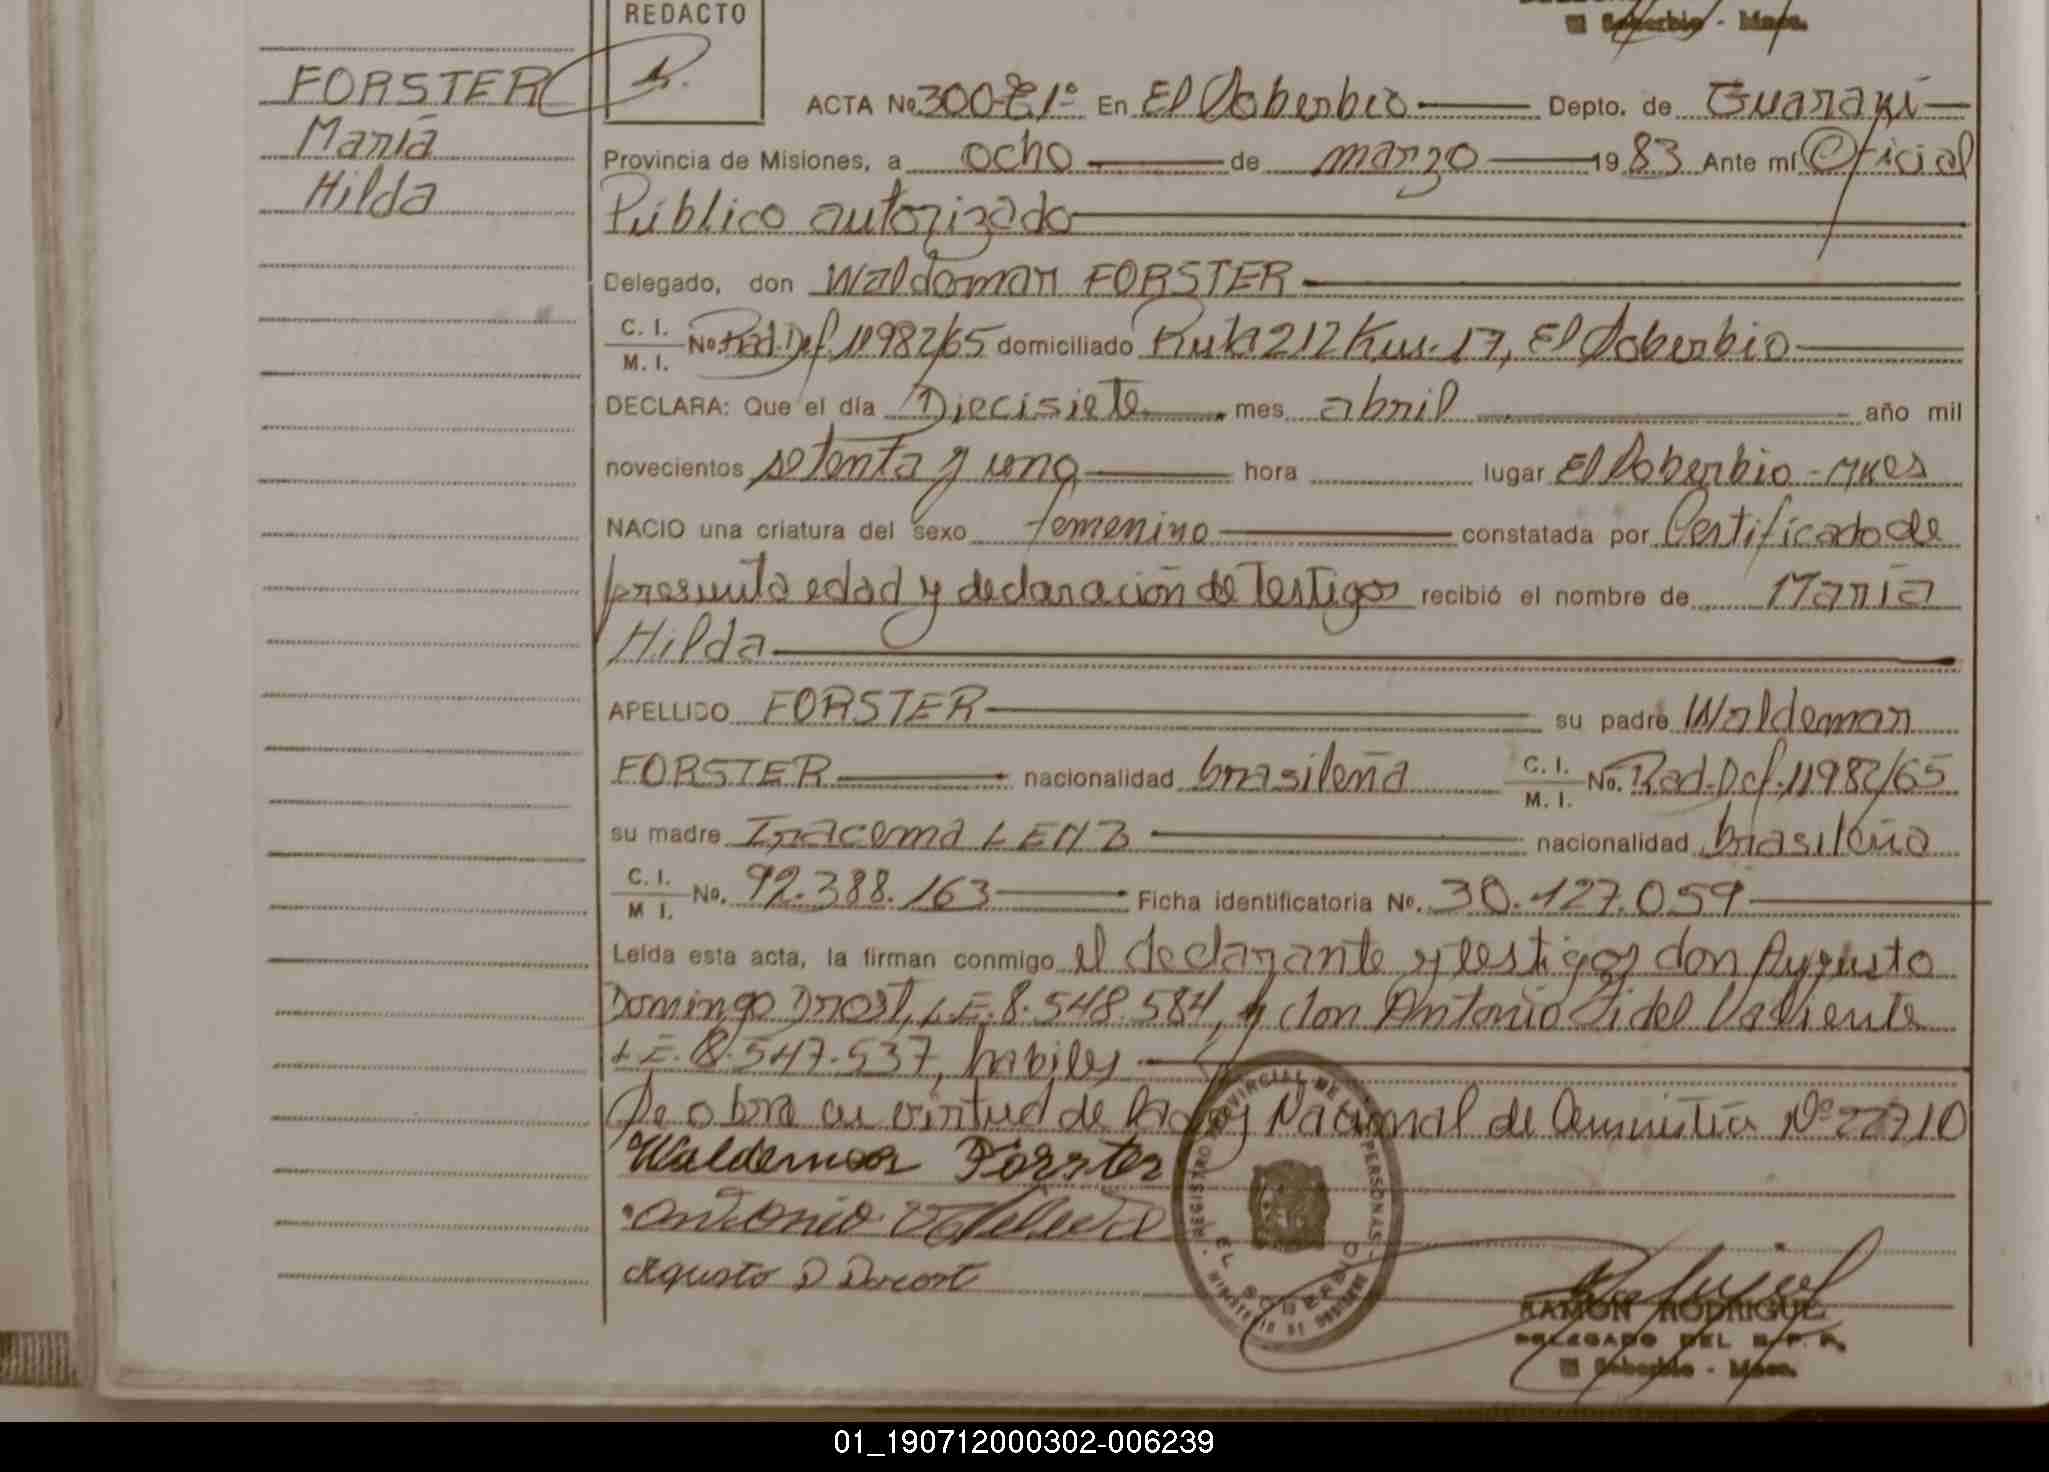 REDACTO
El Soberbio - Mnes.
FORSTER
María
Hilda
ACTA Nº 300-E1º En El Soberbio Depto. de Guaraní
Provincia de Misiones, a ocho de marzo 1983 Ante mí Oficial
Público autorizado
Delegado, don Waldemar FORSTER
C. I. M. I. No. Rad.Def.11982/65 domiciliado Ruta 212 Km. 17, El Soberbio
DECLARA: Que el día Diecisiete mes abril año mil
novecientos setenta y uno hora lugar El Soberbio - Mnes
NACIO una criatura del sexo femenino constatada por Certificado de
presunta edad y declaración de Testigos recibió el nombre de María
Hilda
APELLIDO FORSTER su padre Waldemar
FORSTER nacionalidad brasileña C. I. M. I. No. Rad.Def.11982/65
su madre Iracema LENZ nacionalidad brasileña
C. I. M I. No. 92.388.163 Ficha identificatoria No. 30.127.059
Leída esta acta, la firman conmigo el declarante y testigos don Augusto
Domingo Drost, L.E. 8.548.584, y don Antonio Fidel Valiente
L.E. 8.547.537, hábiles
Se obra en virtud de la Ley Nacional de Amnistía Nº 22710
Waldemar Forster
Antonio
Agusto D
REGISTRO PROVINCIAL DE LAS PERSONAS
EL SOBERBIO
MINISTERIO DE GOBIERNO
RAMON RODRIGUE
DELEGADO DEL R. P. P.
El Soberbio - Mnes.
01_190712000302-006239